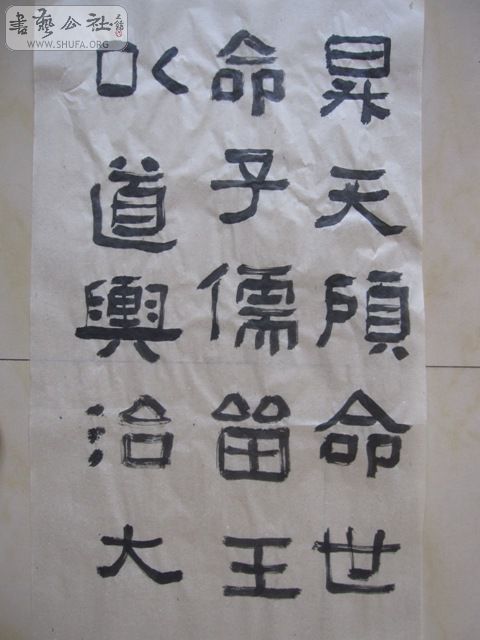 書藝公社
WWW.SHUFA.ORG
昊天頋命世
命子儒留王
以道興治大